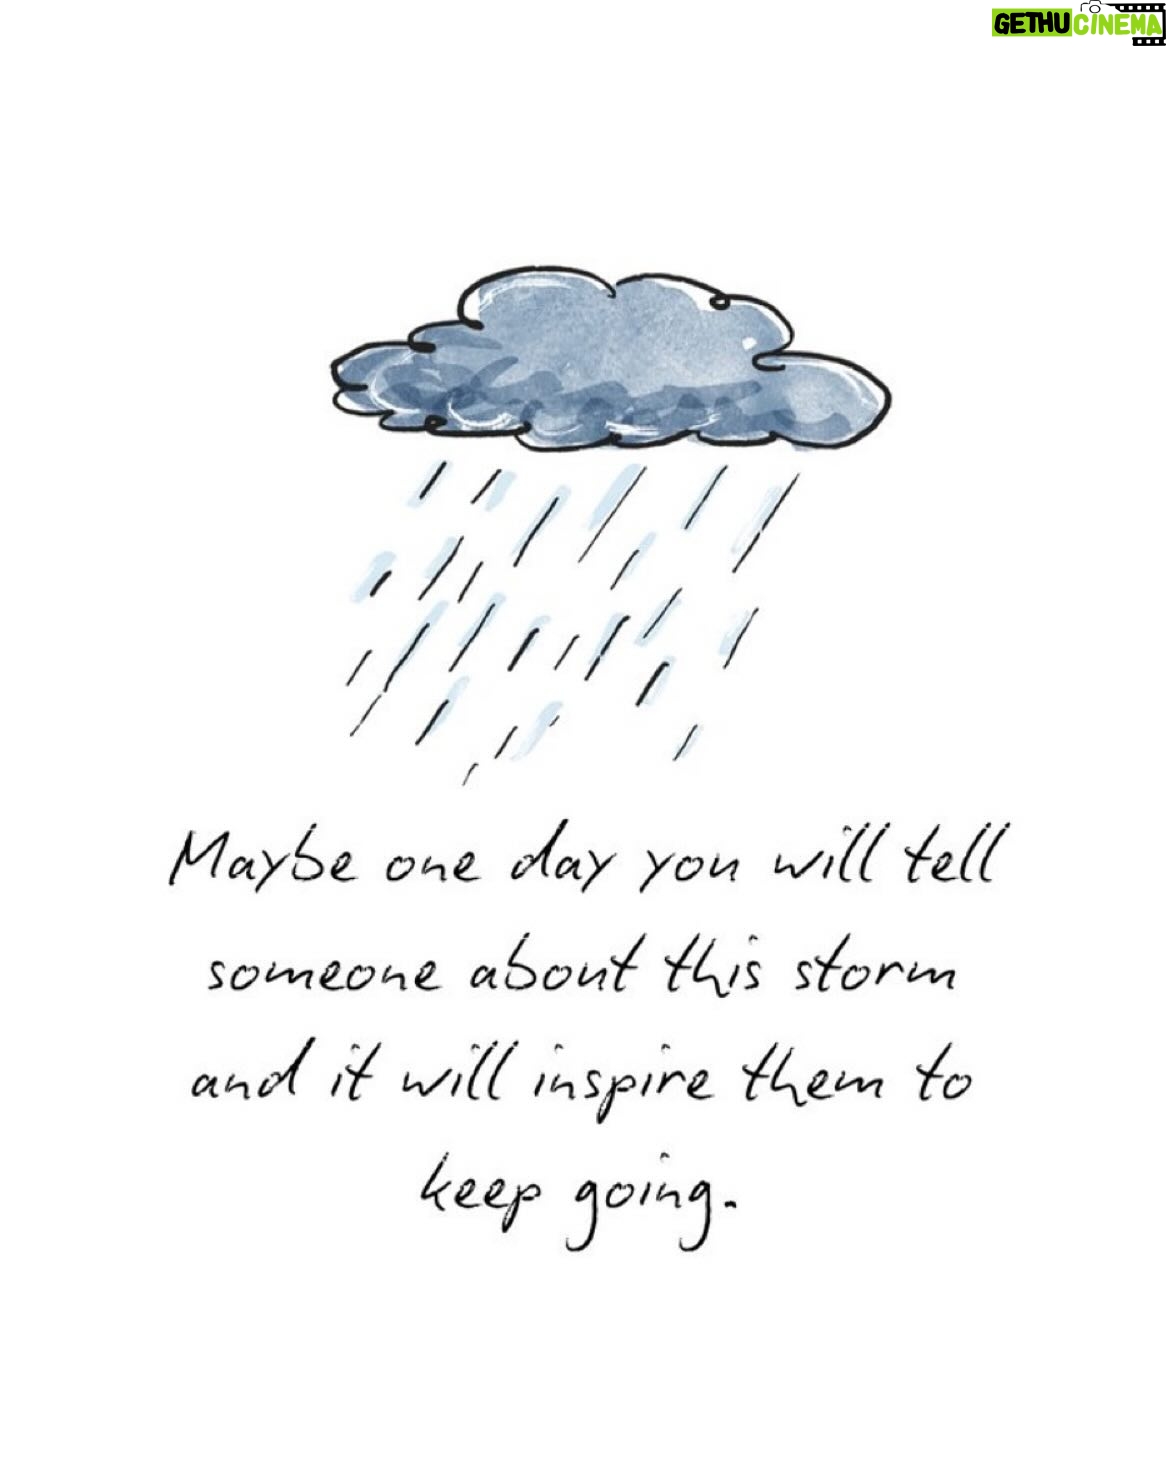 GETHUCINEMA
Maybe one day you will tell
someone about this storm
and it will inspire them to
keep going.